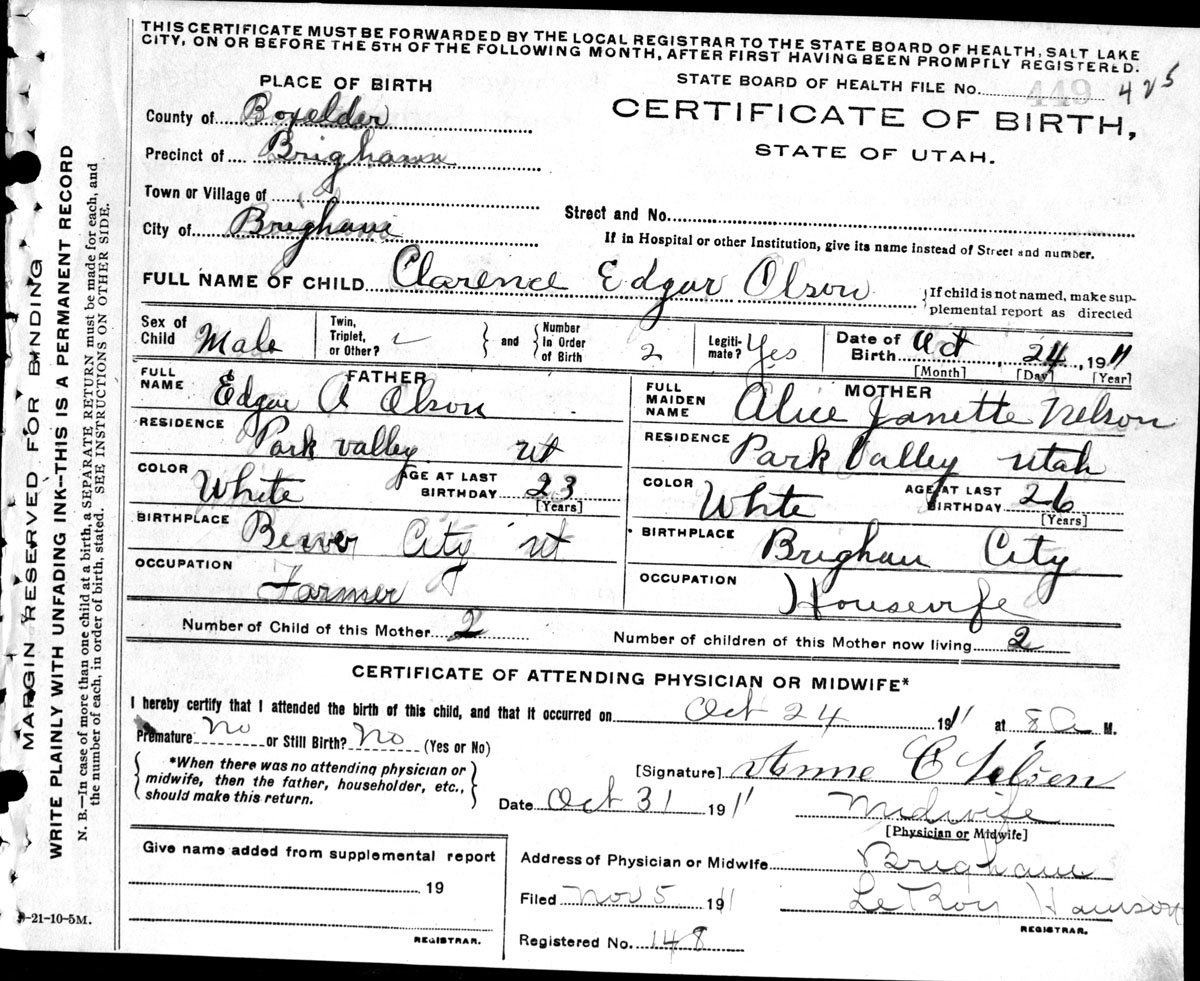 THIS CERTIFICATE MUST BE FORWARDED BY THE LOCAL REGISTRAR TO THE STATE BOARD OF HEALTH, SALT LAKE
CITY, ON OR BEFORE THE 5TH OF THE FOLLOWING MONTH, AFTER FIRST HAVING BEEN PROMPTLY REGISTERED.
PLACE OF BIRTH
STATE BOARD OF HEALTH FILE No. 449 425
County of Boxelder
CERTIFICATE OF BIRTH,
Precinct of Brigham
STATE OF UTAH.
Town or Village of
Street and No.
City of Brigham
If in Hospital or other Institution, give its name instead of Street and number.
FULL NAME OF CHILD Clarence Edgar Olson {If child is not named, make sup-
plemental report as directed
Sex of Child Male Twin, Triplet, or Other? and Number In Order of Birth 2 Legiti-mate? Yes Date of Birth Oct 24, 1911
[Month] [Day] [Year]
FATHER
FULL NAME Edgar A Olson
RESIDENCE Park valley ut
COLOR White AGE AT LAST BIRTHDAY 23
[Years]
BIRTHPLACE Beaver City ut
OCCUPATION Farmer
MOTHER
FULL MAIDEN NAME Alice Janette Nelson
RESIDENCE Park Valley Utah
COLOR Whte AGE AT LAST BIRTHDAY 26
[Years]
BIRTHPLACE Brigham City
OCCUPATION Housewife
Number of Child of this Mother 2 Number of children of this Mother now living 2
CERTIFICATE OF ATTENDING PHYSICIAN OR MIDWIFE*
I hereby certify that I attended the birth of this child, and that it occurred on Oct 24 1911 at 8 a M.
Premature No or Still Birth? No (Yes or No)
*When there was no attending physician or
midwife, then the father, householder, etc.,
should make this return.
[Signature] Anne C
Date Oct 31 1911 Midwife
[Physician or Midwife]
Give name added from supplemental report
19
REGISTRAR.
Address of Physician or Midwife Brigham
Filed Nov 5 1911
REGISTRAR.
Registered No. 148
-21-10-5M.
MARGIN RESERVED FOR BINDING
WRITE PLAINLY WITH UNFADING INK--THIS IS A PERMANENT RECORD
N. B.—In case of more than one child at a birth, a SEPARATE RETURN must be made for each, and
the number of each, in order of birth, stated. SEE INSTRUCTIONS ON OTHER SIDE.